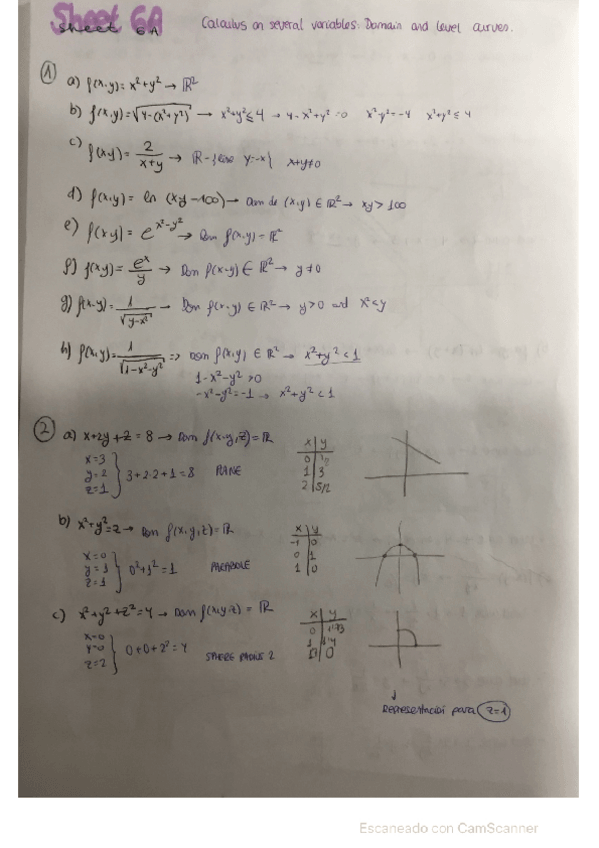 Sheet 6A
Sheet 6A Calculus on several variables: Domain and level curves.
① a) f(x,y) = x²+y² → ℝ²
b) f(x,y) = √4-(x²+y²) → x²+y² ≤ 4 → 4-x²+y² = 0 x²-y² = -4 x²+y² ≤ 4
c) f(x,y) = 2/(x+y) → ℝ - { line y=-x } x+y≠0
d) f(x,y) = ln (xy-100) → Dom de (x,y) ∈ ℝ² → xy > 100
e) f(x,y) = e^(x²-y²) → Dom f(x,y) = ℝ²
f) f(x,y) = e^x/y → Dom f(x-y) ∈ ℝ² → y≠0
g) f(x-y) = 1/√(y-x²) → Dom f(x-y) ∈ ℝ² → y>0 and x²<y
h) f(x,y) = 1/√(1-x²-y²) => Dom f(x,y) ∈ ℝ² → x²+y² < 1
1-x²-y² > 0
-x²-y² = -1 → x²+y² < 1
② a) x+2y+z = 8 → Dom f(x-y,z) = ℝ
x=3
y=2
z=1
3+2·2+1 = 8 PLANE
x y
0
1 3
2 5/2
b) x²+y² = z → Dom f(x,y,z) = ℝ
x=0
y=1
z=1
0²+1² = 1 PARABOLE
x y
-1 0
0 1
1 0
c) x²+y²+z² = 4 → Dom f(x,y,z) = ℝ
x=0
y=0
z=2
0+0+2² = 4 SPHERE RADIUS 2
x y
0 1'73
1 1'4
0
↓
Representación para z=1
Escaneado con CamScanner